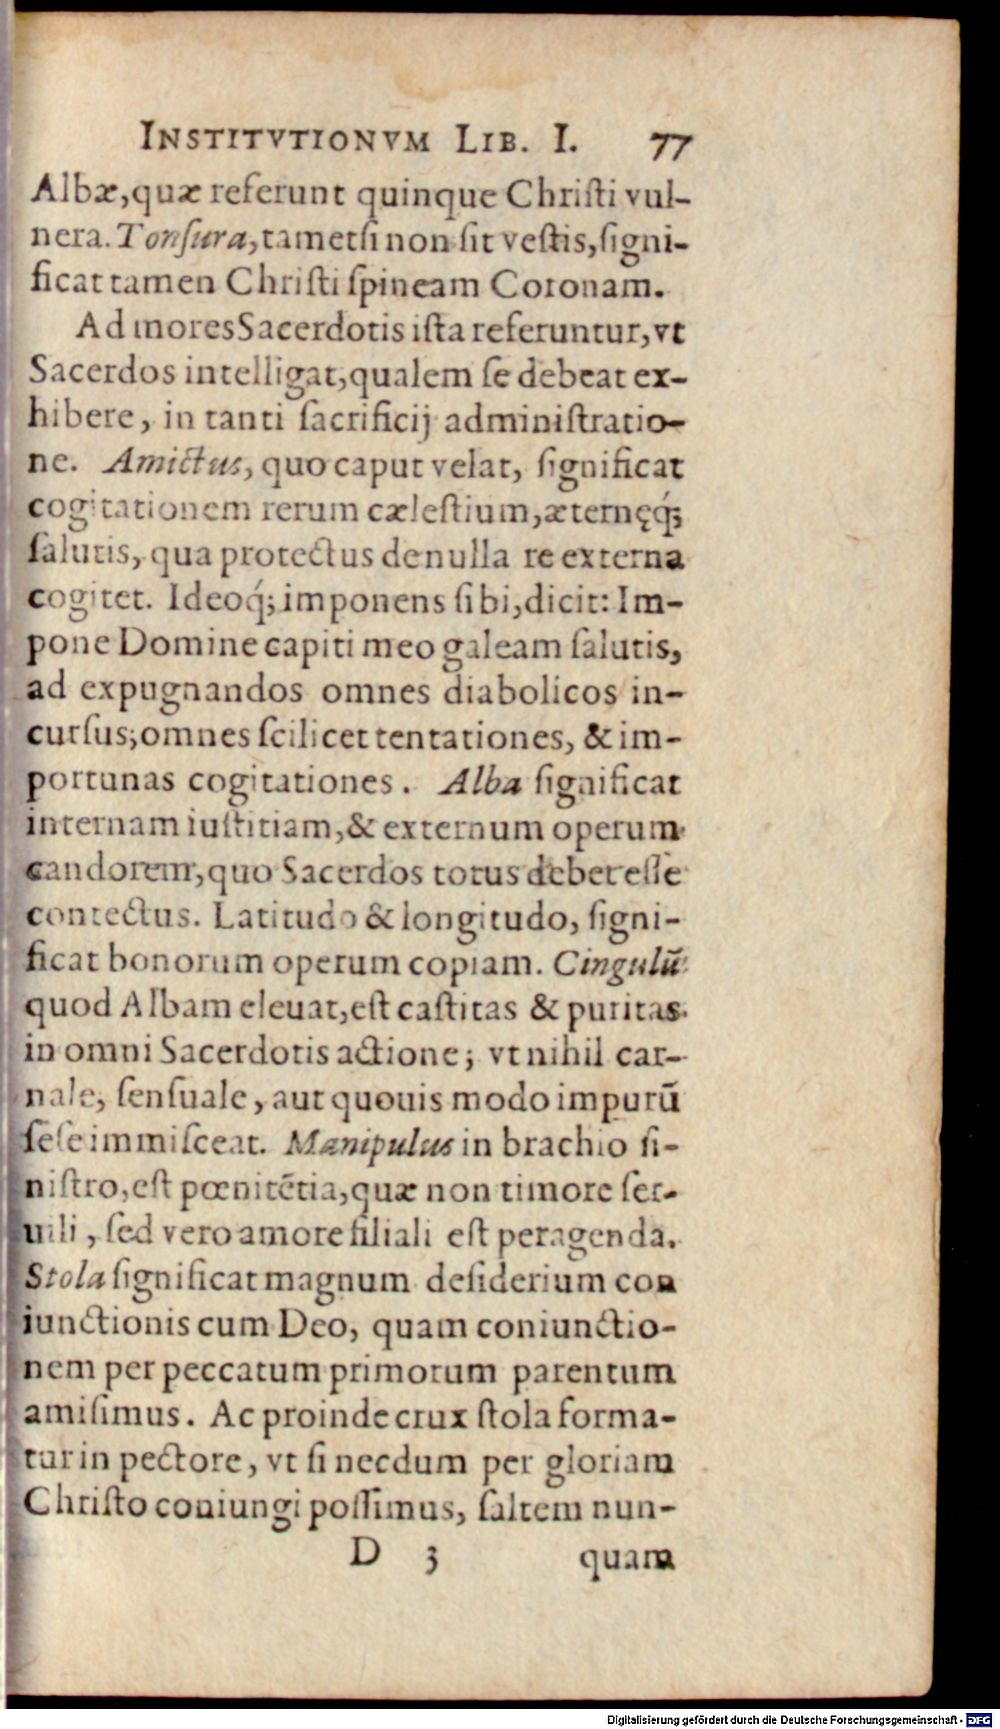 INSTITVTIONVM LIB. I. 77
Albæ, quæ referunt quinque Chriſti vul-
nera. Tonſura, tametſi non ſit veſtis, ſigni-
ficat tamen Chriſti ſpineam Coronam.
Ad mores Sacerdotis iſta referuntur, vt
Sacerdos intelligat, qualem ſe debeat ex-
hibere, in tanti ſacrificij adminiſtratio-
ne. Amictus, quo caput velat, ſignificat
cogitationem rerum cæleſtium, æternęq́;
ſalutis, qua protectus de nulla re externa
cogitet. Ideoq́; imponens ſibi, dicit: Im-
pone Domine capiti meo galeam ſalutis,
ad expugnandos omnes diabolicos in-
curſus; omnes ſcilicet tentationes, & im-
portunas cogitationes. Alba ſignificat
internam iuſtitiam, & externum operum
candorem, quo Sacerdos totus debet eſſe
contectus. Latitudo & longitudo, ſigni-
ficat bonorum operum copiam. Cingulū
quod Albam eleuat, eſt caſtitas & puritas
in omni Sacerdotis actione; vt nihil car-
nale, ſenſuale, aut quouis modo impurū
ſeſe immiſceat. Manipulus in brachio ſi-
niſtro, eſt pœnitētia, quæ non timore ſer-
uili, ſed vero amore filiali eſt peragenda.
Stola ſignificat magnum deſiderium con
iunctionis cum Deo, quam coniunctio-
nem per peccatum primorum parentum
amiſimus. Ac proinde crux ſtola forma-
tur in pectore, vt ſi necdum per gloriam
Chriſto coniungi poſſimus, ſaltem nun-
D 3 quam
Digitalisierung gefördert durch die Deutsche Forschungsgemeinschaft - DFG